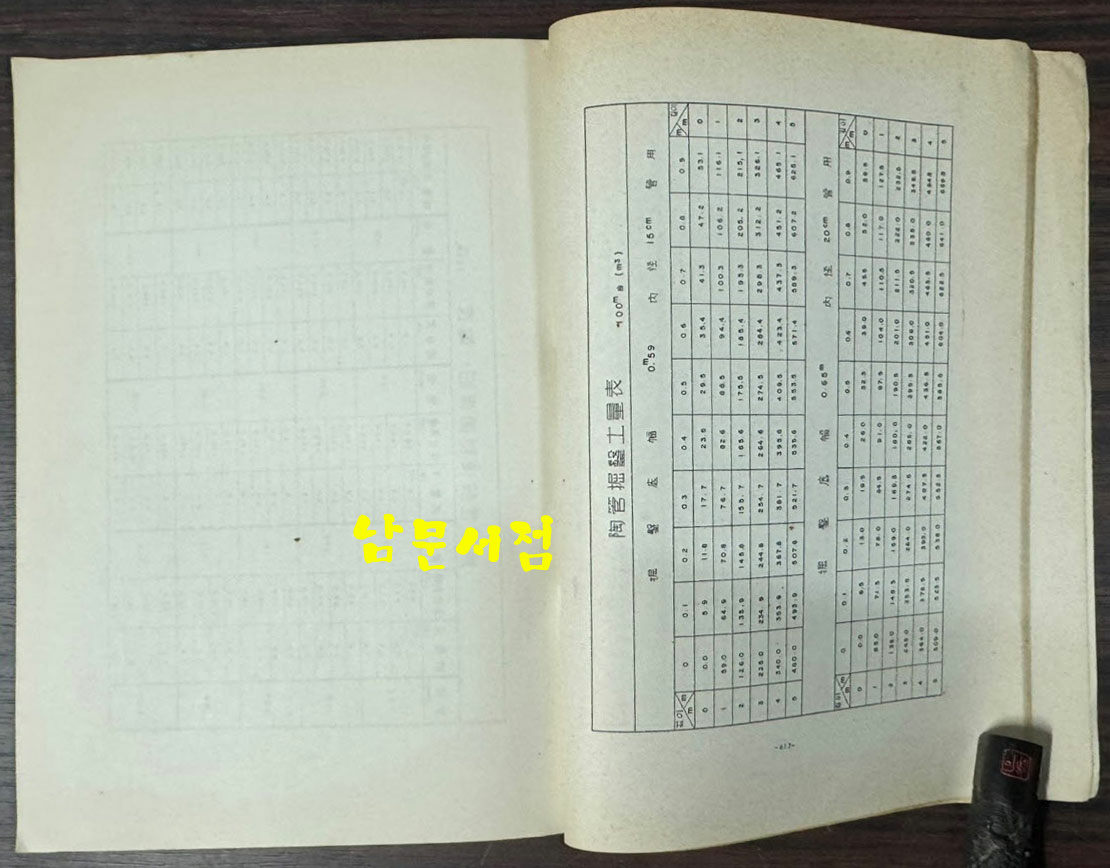 陶管掘鑿土量表
100m当 (m³)
掘鑿底幅 0.59m 内径 15cm 管用
깊이 m m 0 0.1 0.2 0.3 0.4 0.5 0.6 0.7 0.8 0.9 m m 깊이
0 0.0 5.9 11.8 17.7 23.6 29.5 35.4 41.3 47.2 53.1 0
1 59.0 64.9 70.8 76.7 82.6 88.5 94.4 100.3 106.2 116.1 1
2 126.0 135.9 145.8 155.7 165.6 175.5 185.4 195.3 205.2 215.1 2
3 225.0 234.9 244.8 254.7 264.6 274.5 284.4 298.3 312.2 326.1 3
4 340.0 353.9 367.8 381.7 395.6 409.5 423.4 437.3 451.2 465.1 4
5 480.0 493.9 507.8 521.7 535.6 553.5 571.4 589.3 607.2 625.1 5
掘鑿底幅 0.65m 内径 20cm 管用
깊이 m m 0 0.1 0.2 0.3 0.4 0.5 0.6 0.7 0.8 0.9 m m 깊이
0 0.0 6.5 13.0 19.5 26.0 32.5 39.0 45.5 52.0 58.5 0
1 65.0 71.5 78.0 84.5 91.0 97.5 104.0 110.5 117.0 127.5 1
2 138.0 148.5 159.0 169.5 180.0 190.5 201.0 211.5 222.0 232.5 2
3 243.0 253.5 264.0 274.5 285.0 295.5 306.0 320.5 335.0 349.5 3
4 364.0 378.5 393.0 407.5 422.0 436.5 451.0 465.5 480.0 494.5 4
5 509.0 523.5 538.0 552.5 567.0 585.5 604.0 622.5 641.0 659.5 5
-617-
남문서점